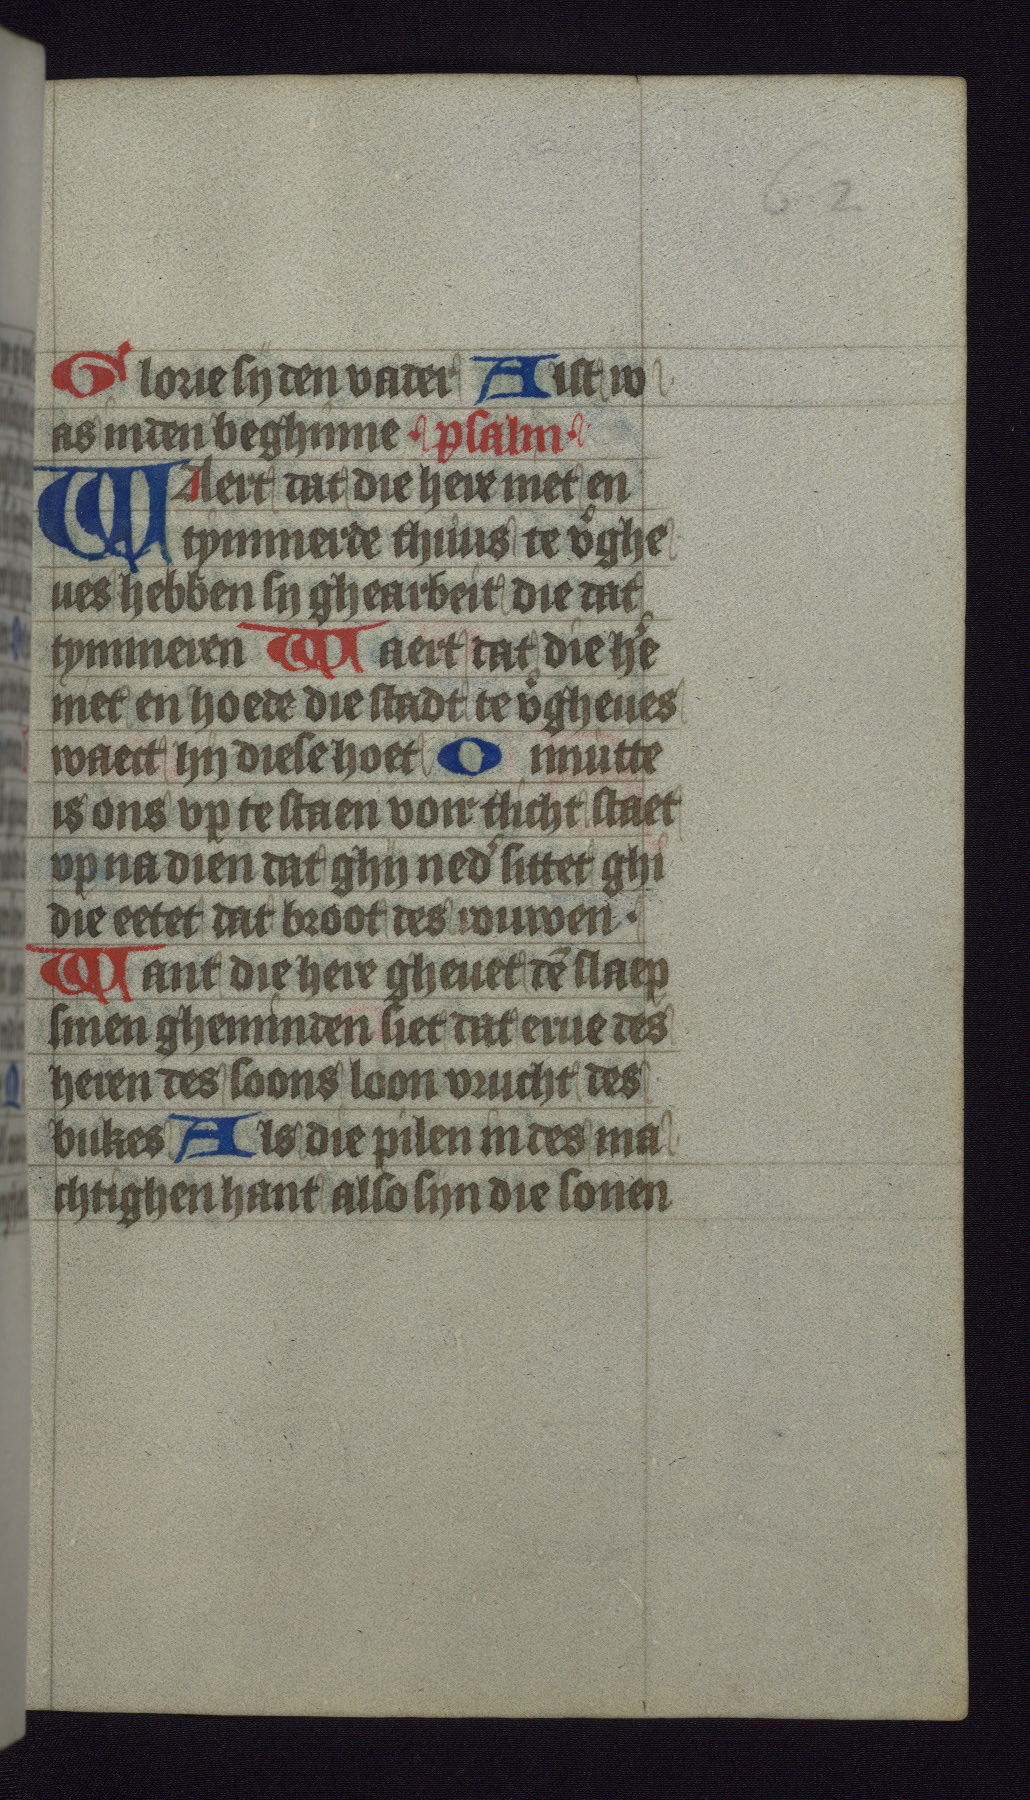 62
Glorie sy den vater Alst w
as in den beghinne · psalm ·
WAert dat die here met en
tymmerde thuus te v̉ghe
ues hebben sy ghearbeit die dat
tymmeren Waert dat die hr̉e
met en hoede die stadt te v̉gheues
waect hy diese hoet Onnutte
is ons vp te staen voir tlicht staet
vp na dien dat ghy ned̉ sittet ghi
die eetet dat broot des rouwen ·
Want die here gheuet dē slaep
sinen gheminden siet dat erue des
heren des soons loon vrucht des
bukes Als die pilen in des ma
chtighen hant also syn die sonen